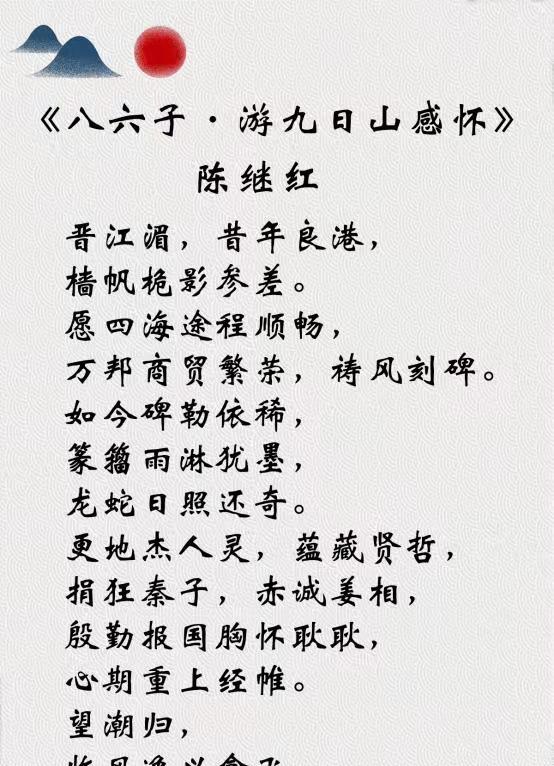 《八六子·游九日山感怀》
陈继红
晋江湄，昔年良港，
樯帆桅影参差。
愿四海途程顺畅，
万邦商贸繁荣，祷风刻碑。
如今碑勒依稀，
篆籀雨淋犹墨，
龙蛇日照还奇。
更地杰人灵，蕴藏贤哲，
捐狂秦子，赤诚姜相，
殷勤报国胸怀耿耿，
心期重上经帷。
望潮归，